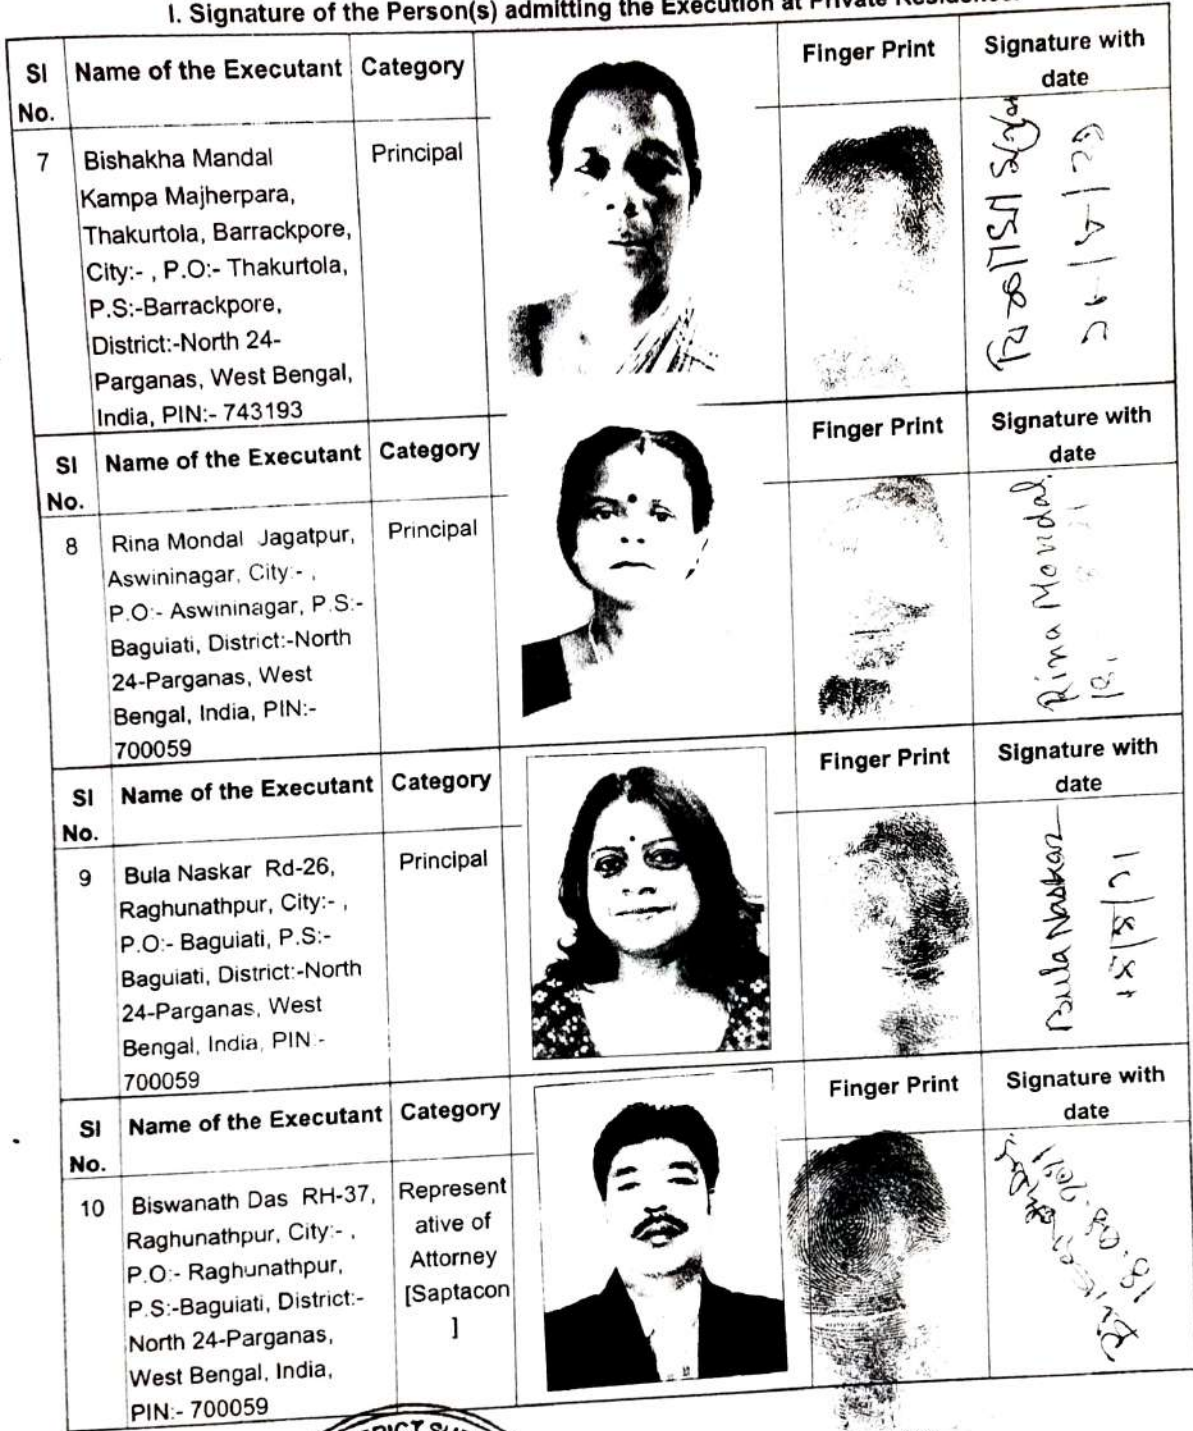 I. Signature of the Person(s) admitting the Execution at Private
Sl No. Name of the Executant Category Finger Print Signature with date
7 Bishakha Mandal Principal
Kampa Majherpara,
Thakurtola, Barrackpore,
City:- , P.O:- Thakurtola,
P.S:-Barrackpore,
District:-North 24-
Parganas, West Bengal,
India, PIN:- 743193
Sl No. Name of the Executant Category Finger Print Signature with date
8 Rina Mondal Jagatpur, Principal
Aswininagar, City:- ,
P.O:- Aswininagar, P.S:-
Baguiati, District:-North
24-Parganas, West
Bengal, India, PIN:-
700059
Rina Mondal
Sl No. Name of the Executant Category Finger Print Signature with date
9 Bula Naskar Rd-26, Principal
Raghunathpur, City:- ,
P.O:- Baguiati, P.S:-
Baguiati, District:-North
24-Parganas, West
Bengal, India, PIN:-
700059
Bula Naskar
Sl No. Name of the Executant Category Finger Print Signature with date
10 Biswanath Das RH-37,
Raghunathpur, City:- ,
P.O:- Raghunathpur,
P.S:-Baguiati, District:-
North 24-Parganas,
West Bengal, India,
PIN:- 700059
Represent
ative of
Attorney
[Saptacon
]
18.08.2021